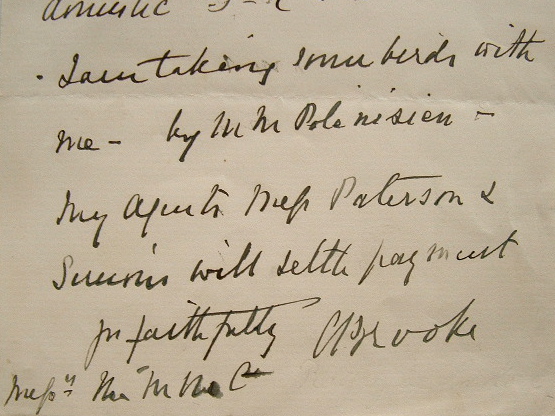 domestic
I am taking some birds with
me - by M M Polinisien -
My Agents Messrs Paterson &
Simons will settle payment
Yrs faithfully C Brooke
Messrs Co